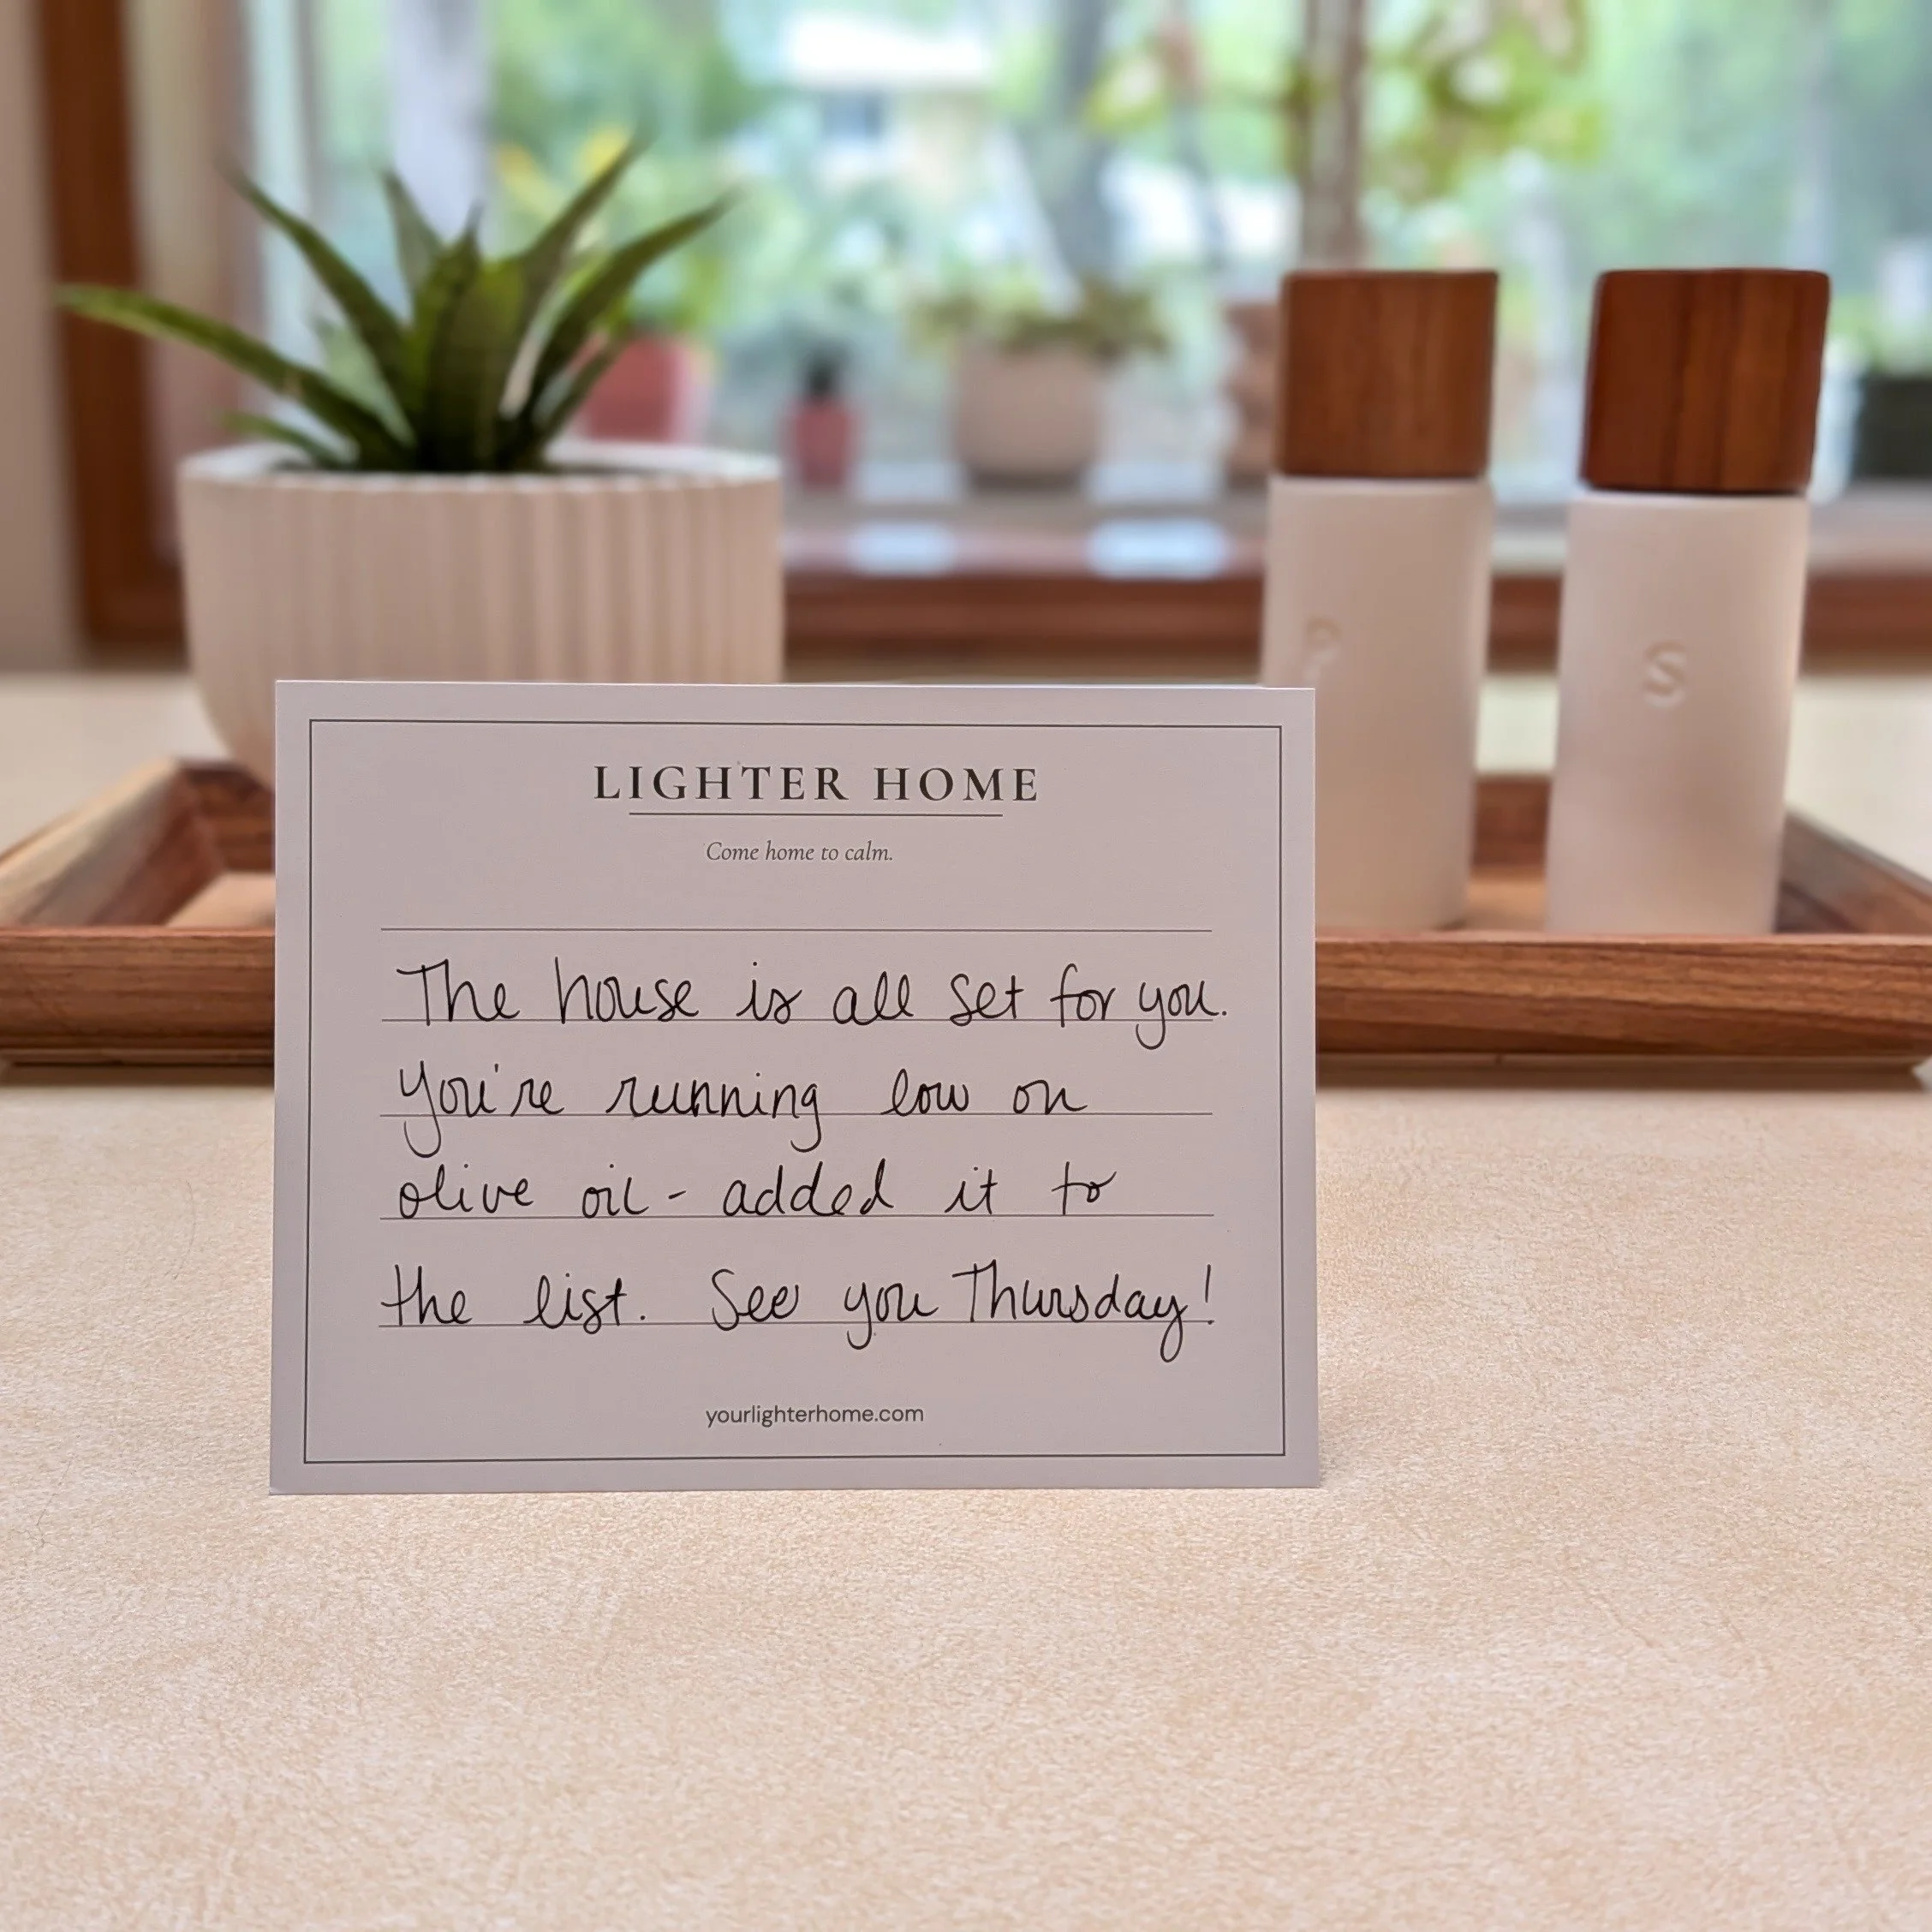 LIGHTER HOME
Come home to calm.
The house is all set for you.
You're running low on
olive oil - added it to
the list. See you Thursday!
yourlighterhome.com
P
S